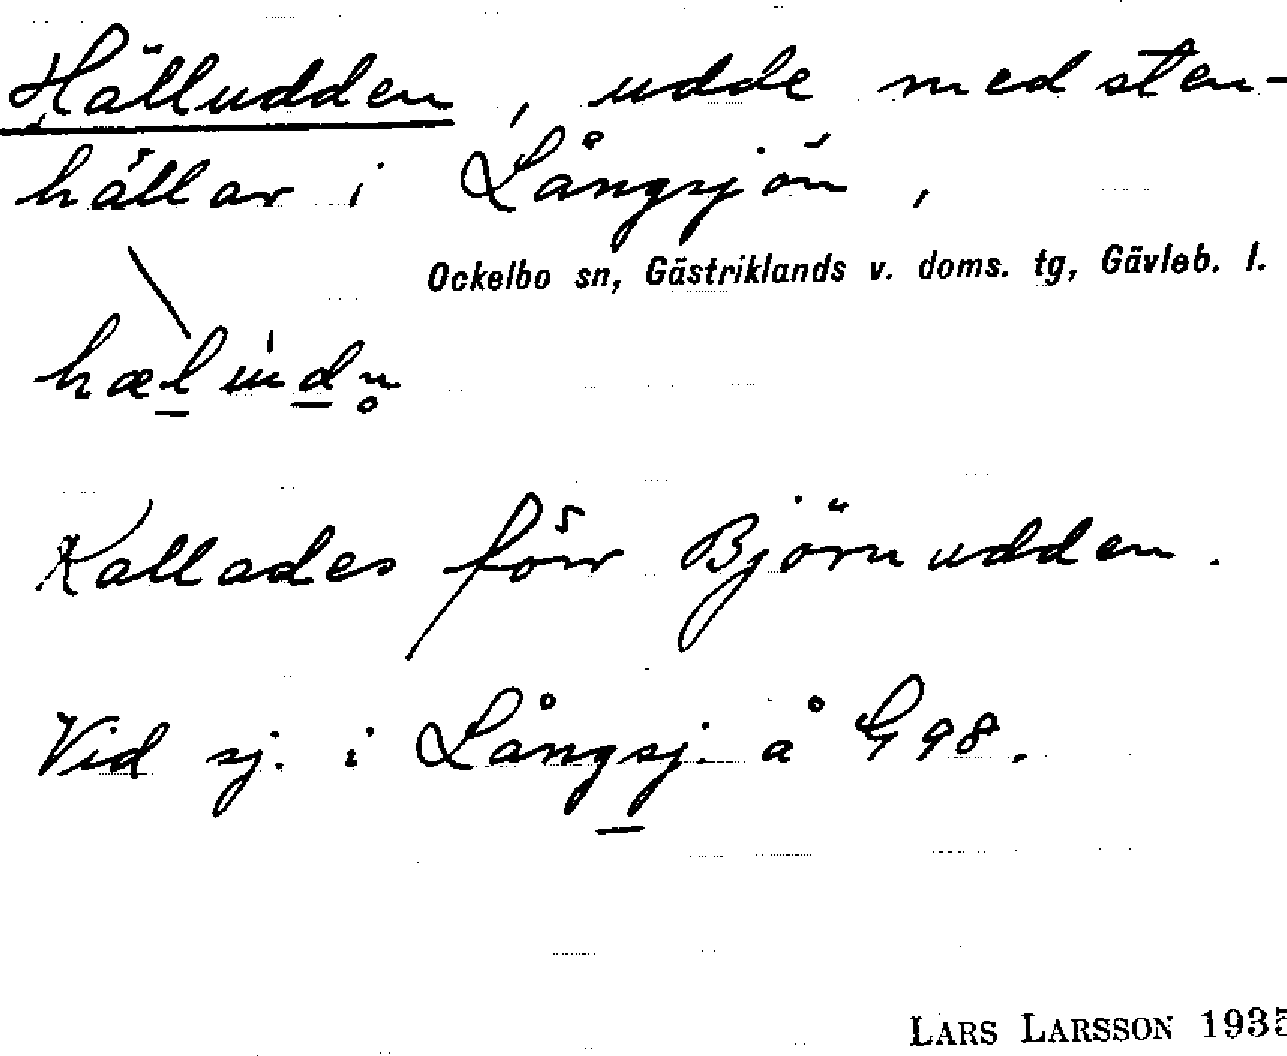 Hälludden, udde med sten-
hällar i Långsjön,
Ockelbo sn, Gästriklands v. doms. tg, Gävleb. l.
Kallades förr Björnudden.
Vid sj. i Långsj. å G 98.
LARS LARSSON 1935